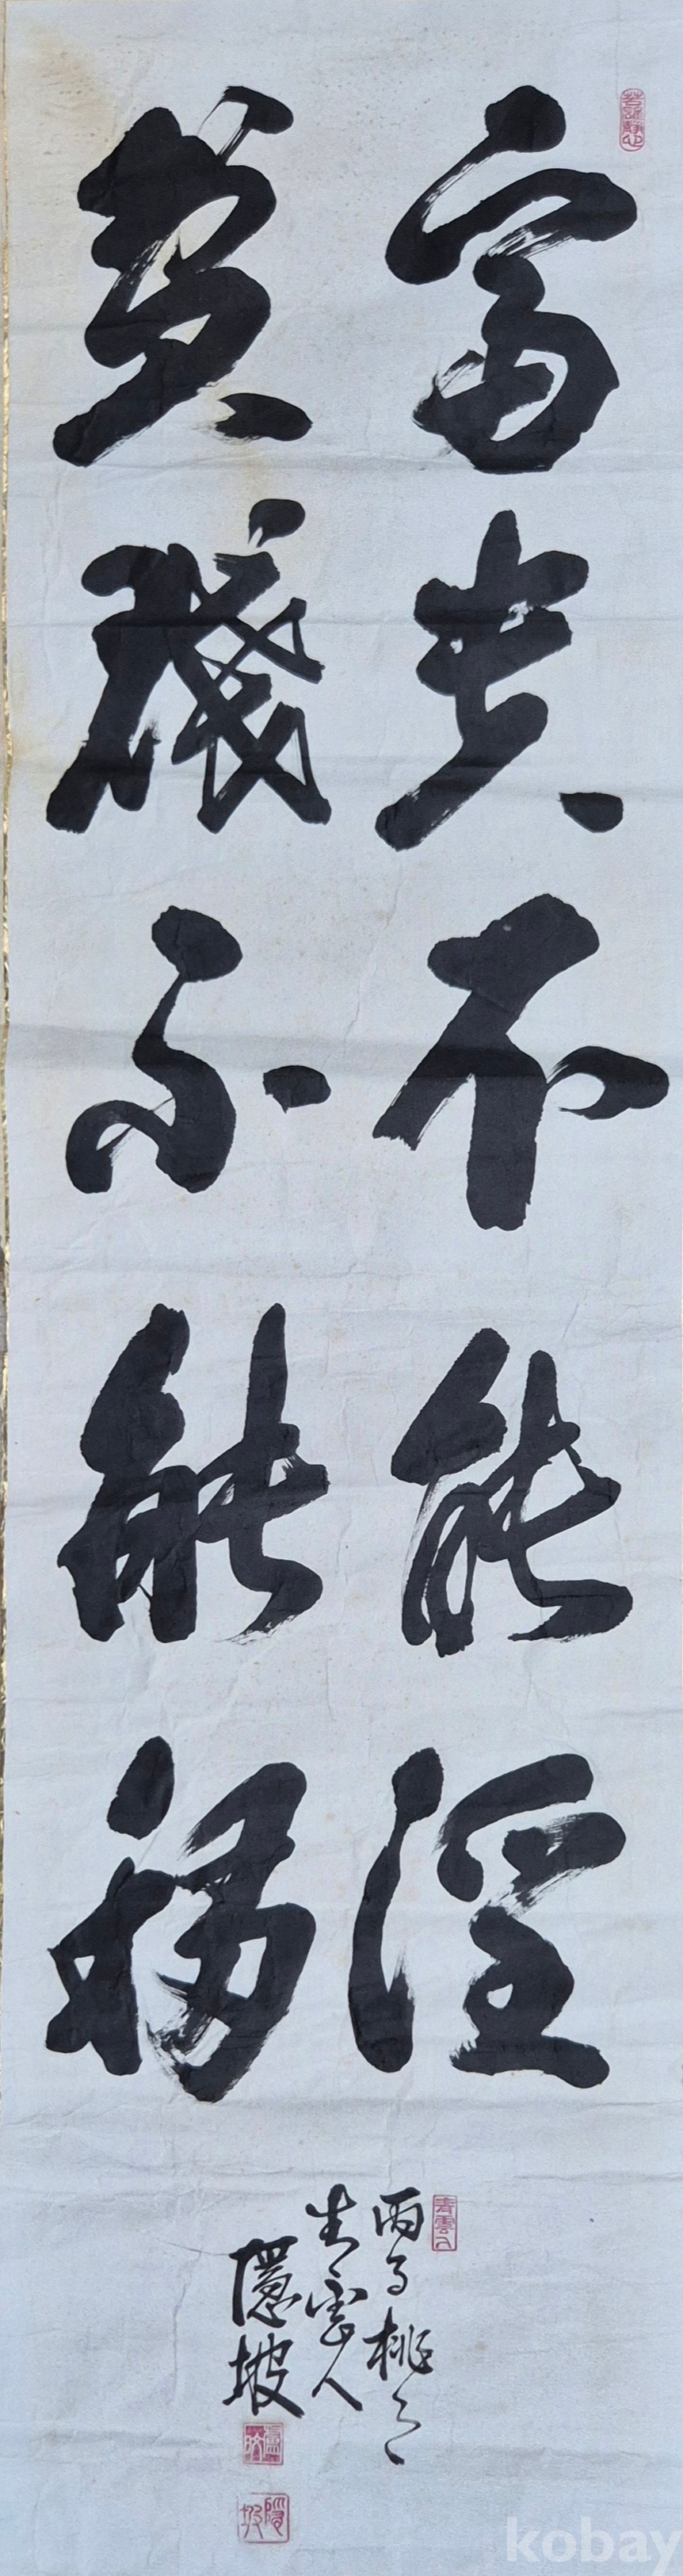 富貴不能淫
貧賤不能移
丙子桃之
青雲人
隱坡
kobay